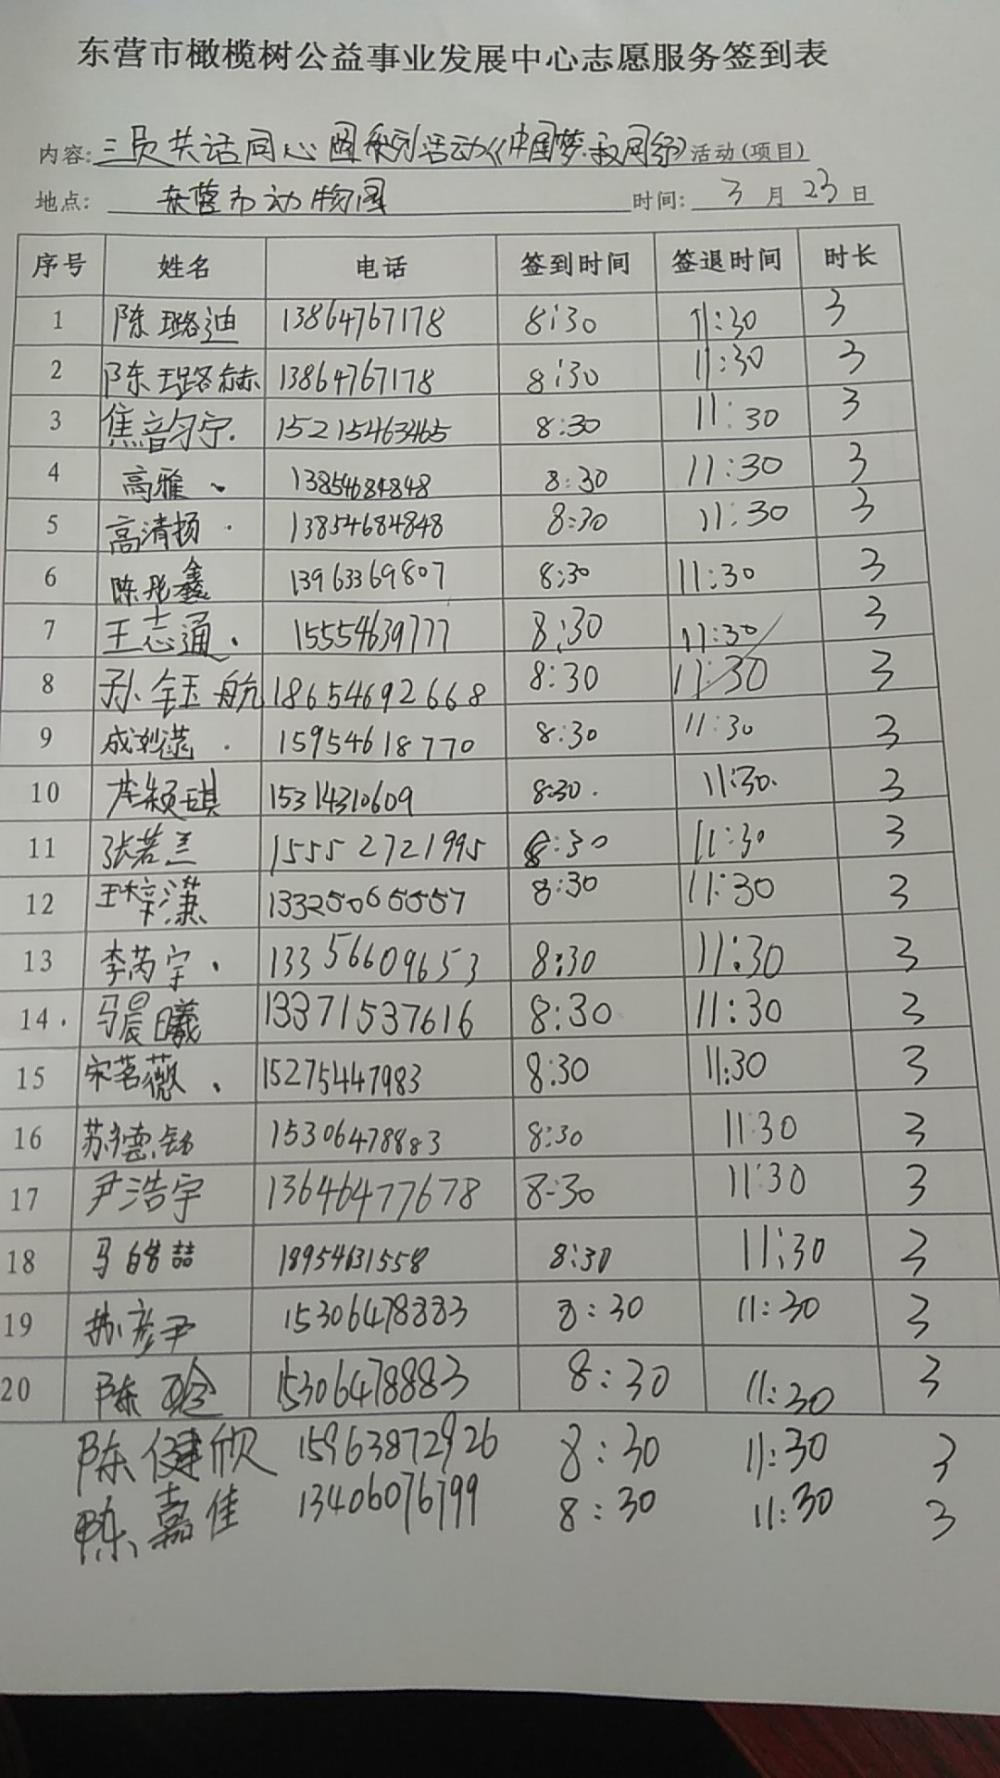 东营市橄榄树公益事业发展中心志愿服务签到表
内容:三员共话同心圆系列活动《中国梦·家同缘》活动(项目)
地点: 东营市动物园 时间: 3 月 23 日
序号 姓名 电话 签到时间 签退时间 时长
1 陈璐迪 13864767178 8:30 11:30 3
2 陈璐赫 13864767178 8:30 11:30 3
3 焦韵宁. 15215463465 8:30 11:30 3
4 高雅 13854684848 8:30 11:30 3
5 高清扬 13854684848 8:30 11:30 3
6 陈彤鑫 13963369807 8:30 11:30 3
7 王志通 15554639777 8:30 11:30 3
8 孙钰航 18654692668 8:30 11:30 3
9 15954618770 8:30 11:30 3
10 颖琪 15314310609 8:30. 11:30. 3
11 张若兰 15552721995 8:30 11:30 3
12 王梓潇 13325065557 8:30 11:30 3
13 李芮宇 13356609653 8:30 11:30 3
14 马晨曦 13371537616 8:30 11:30 3
15 宋茗薇 15275447983 8:30 11:30 3
16 苏德铭 15306478883 8:30 11:30 3
17 尹浩宇 13646477678 8:30 11:30 3
18 马皓喆 18954631558 8:30 11:30 3
19 苏彦尹 15306478883 8:30 11:30 3
20 陈 15306478883 8:30 11:30 3
陈健欣 15963872926 8:30 11:30 3
陈嘉佳 13406076799 8:30 11:30 3